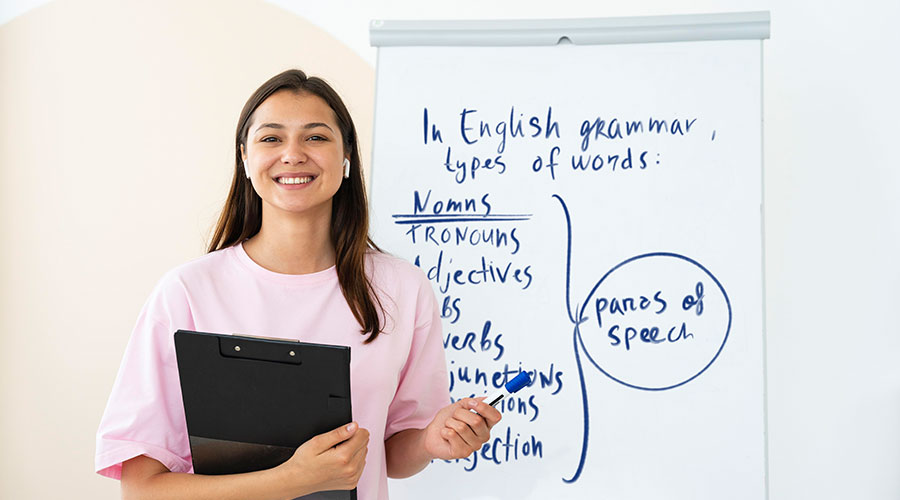 In English grammar,
types of words:
Nomns
PRONOUNS
Adjectives
bs
verbs
junctions
sitions
jection
paras of
speech